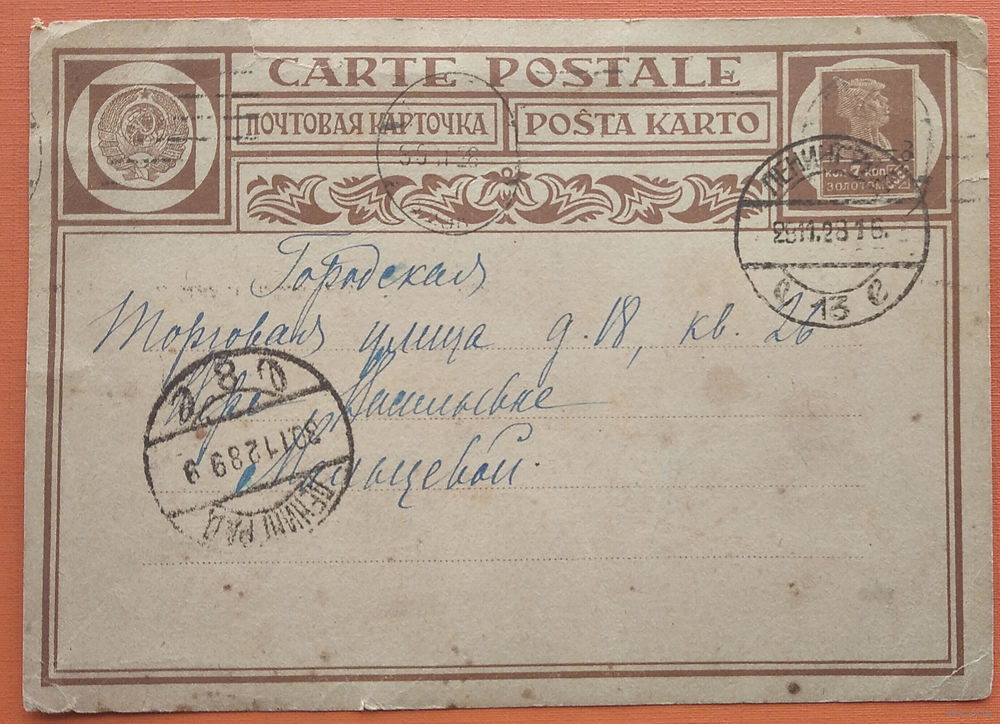 CARTE POSTALE
ПОЧТОВАЯ КАРТОЧКА
POŜTA KARTO
КОП. 7 КОП.
ЗОЛОТОМ
ЛЕНИНГРАД
29.11.28 16.
е 13 е
Городская
Торговая улица д. 18, кв. 26
Вере Васильевне
Мальцевой
8
30.11.28 9
ЛЕНИНГРАД